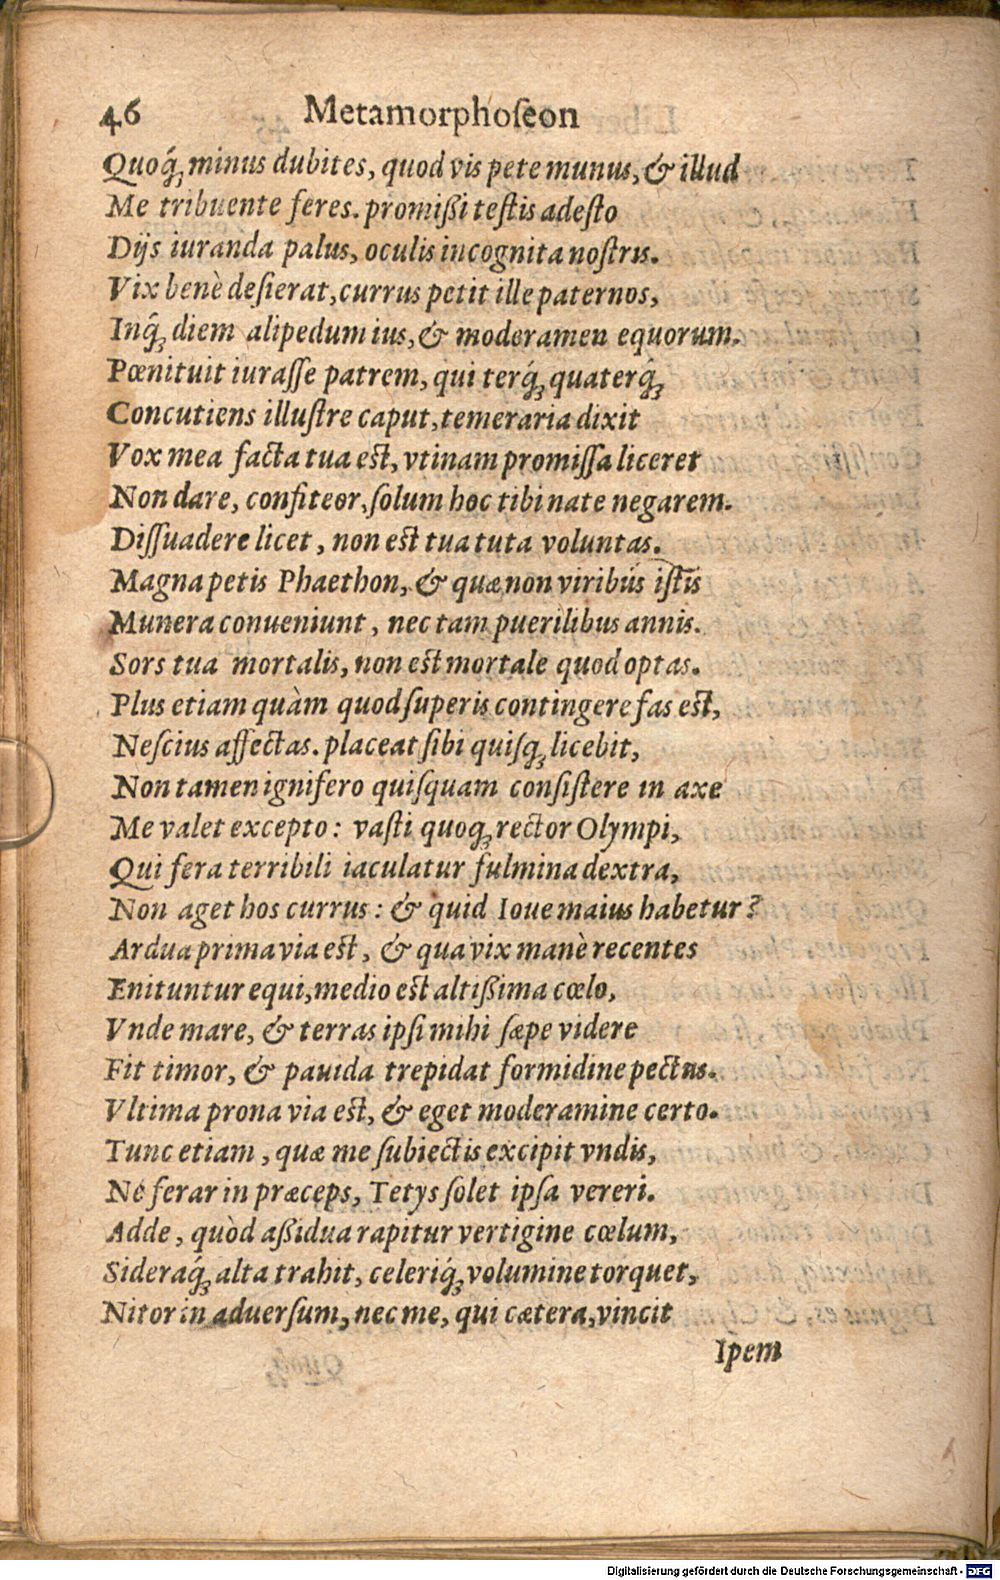 46 Metamorphoſeon
Quoq́ꝫ minus dubites, quod vis pete munus, & illud
Me tribuente feres. promißi teſtis adeſto
Dijs iuranda palus, oculis incognita noſtris.
Vix benè deſierat, currus petit ille paternos,
Inq́ꝫ diem alipedum ius, & moderamen equorum.
Pœnituit iuraſſe patrem, qui terq́ꝫ quaterq́ꝫ
Concutiens illuſtre caput, temeraria dixit
Vox mea facta tua eſt, vtinam promiſſa liceret
Non dare, confiteor, ſolum hoc tibi nate negarem.
Diſſuadere licet, non eſt tua tuta voluntas.
Magna petis Phaethon, & quæ non viribus iſtis
Munera conueniunt, nec tam puerilibus annis.
Sors tua mortalis, non eſt mortale quod optas.
Plus etiam quàm quod ſuperis contingere fas eſt,
Neſcius affectas. placeat ſibi quiſqꝫ licebit,
Non tamen ignifero quiſquam conſiſtere in axe
Me valet excepto: vaſti quoqꝫ rector Olympi,
Qui fera terribili iaculatur fulmina dextra,
Non aget hos currus: & quid Ioue maius habetur?
Ardua prima via eſt, & qua vix manè recentes
Enituntur equi, medio eſt altißima cœlo,
Vnde mare, & terras ipſi mihi ſæpe videre
Fit timor, & pauida trepidat formidine pectus.
Vltima prona via eſt, & eget moderamine certo.
Tunc etiam, quæ me ſubiectis excipit vndis,
Né ferar in præceps, Tetys ſolet ipſa vereri.
Adde, quòd aßidua rapitur vertigine cœlum,
Sideraq́ꝫ alta trahit, celeriq́ꝫ volumine torquet,
Nitor in aduerſum, nec me, qui cætera, vincit
Ipem
Digitalisierung gefördert durch die Deutsche Forschungsgemeinschaft - DFG